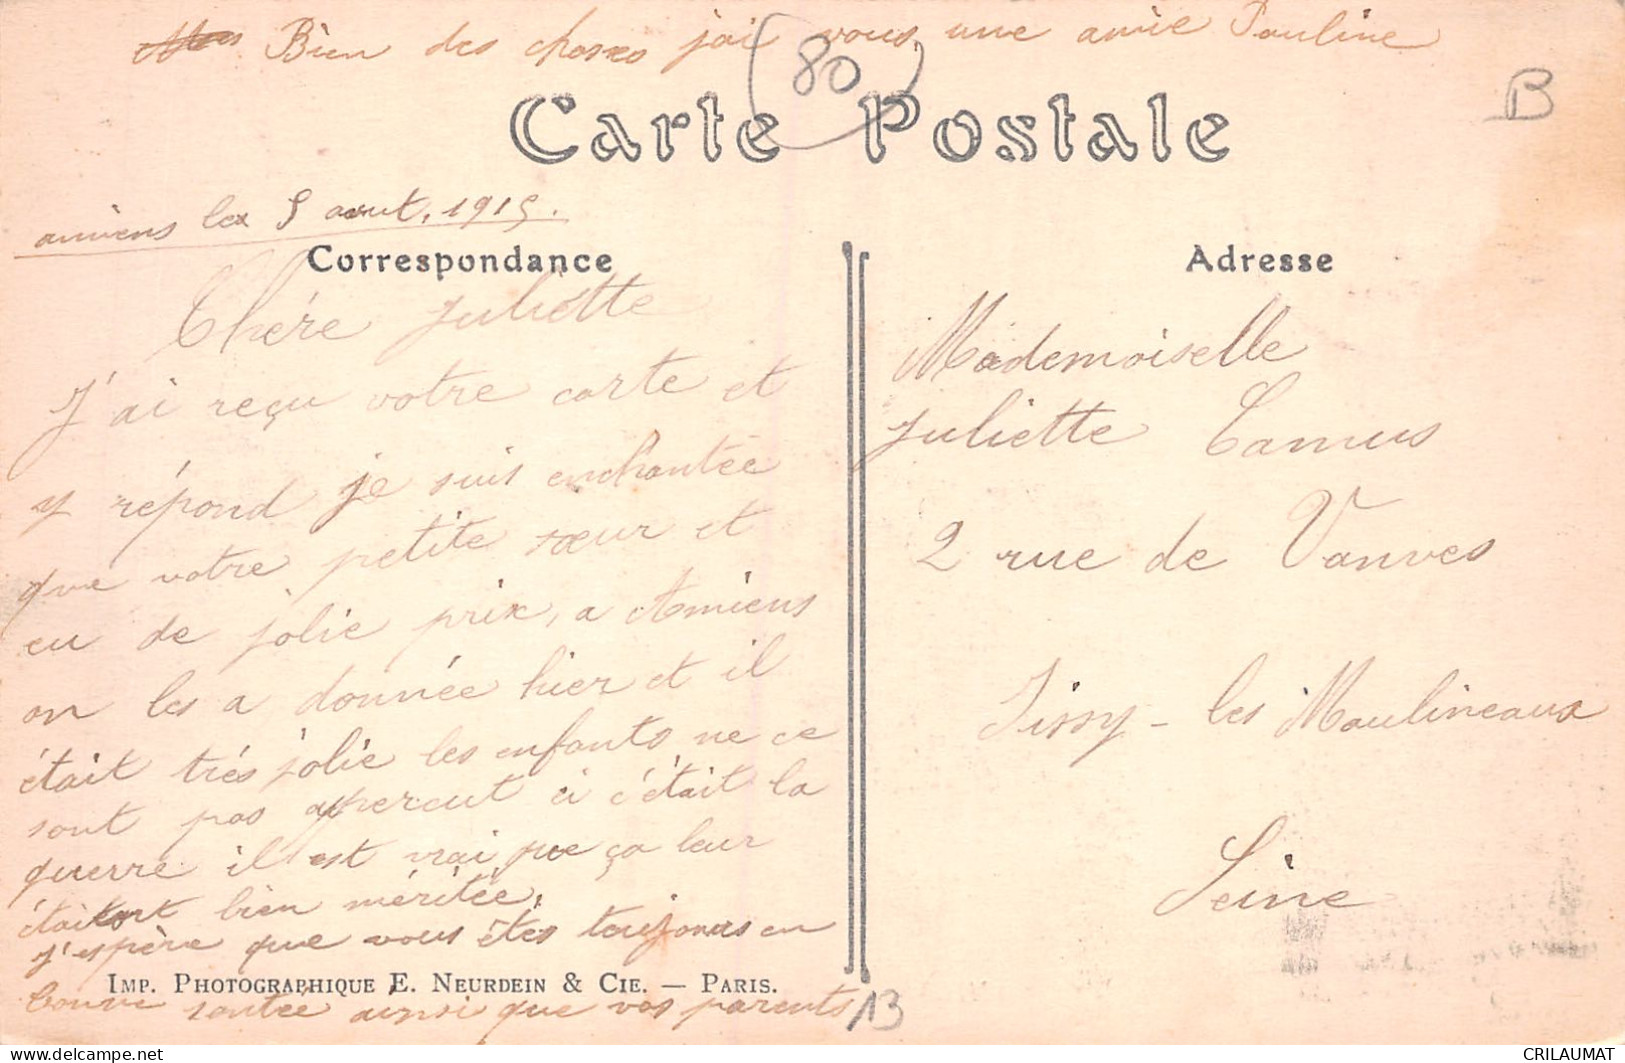 Bien des choses j'ai vous une amie Pauline
(80)
B
Carte Postale
amiens le 5 aout. 1915.
Correspondance
Chére Juliette
J'ai reçu votre carte et
y répond je suis enchantée
que votre petite sœur et
eu de jolie prix, a Amiens
on les a donnée hier et il
était trés jolie les enfants ne ce
sont pas apercut ci c'était la
guerre il est vrai que ça leur
était bien méritée.
J'espère que vous êtes toujours en
bonne santée ainsi que vos parents
Imp. Photographique E. Neurdein & Cie. — Paris.
13
Adresse
Mademoiselle
Juliette Camus
2 rue de Vanves
Issy - les Moulineaux
Seine
CRILAUMAT
delcampe.net